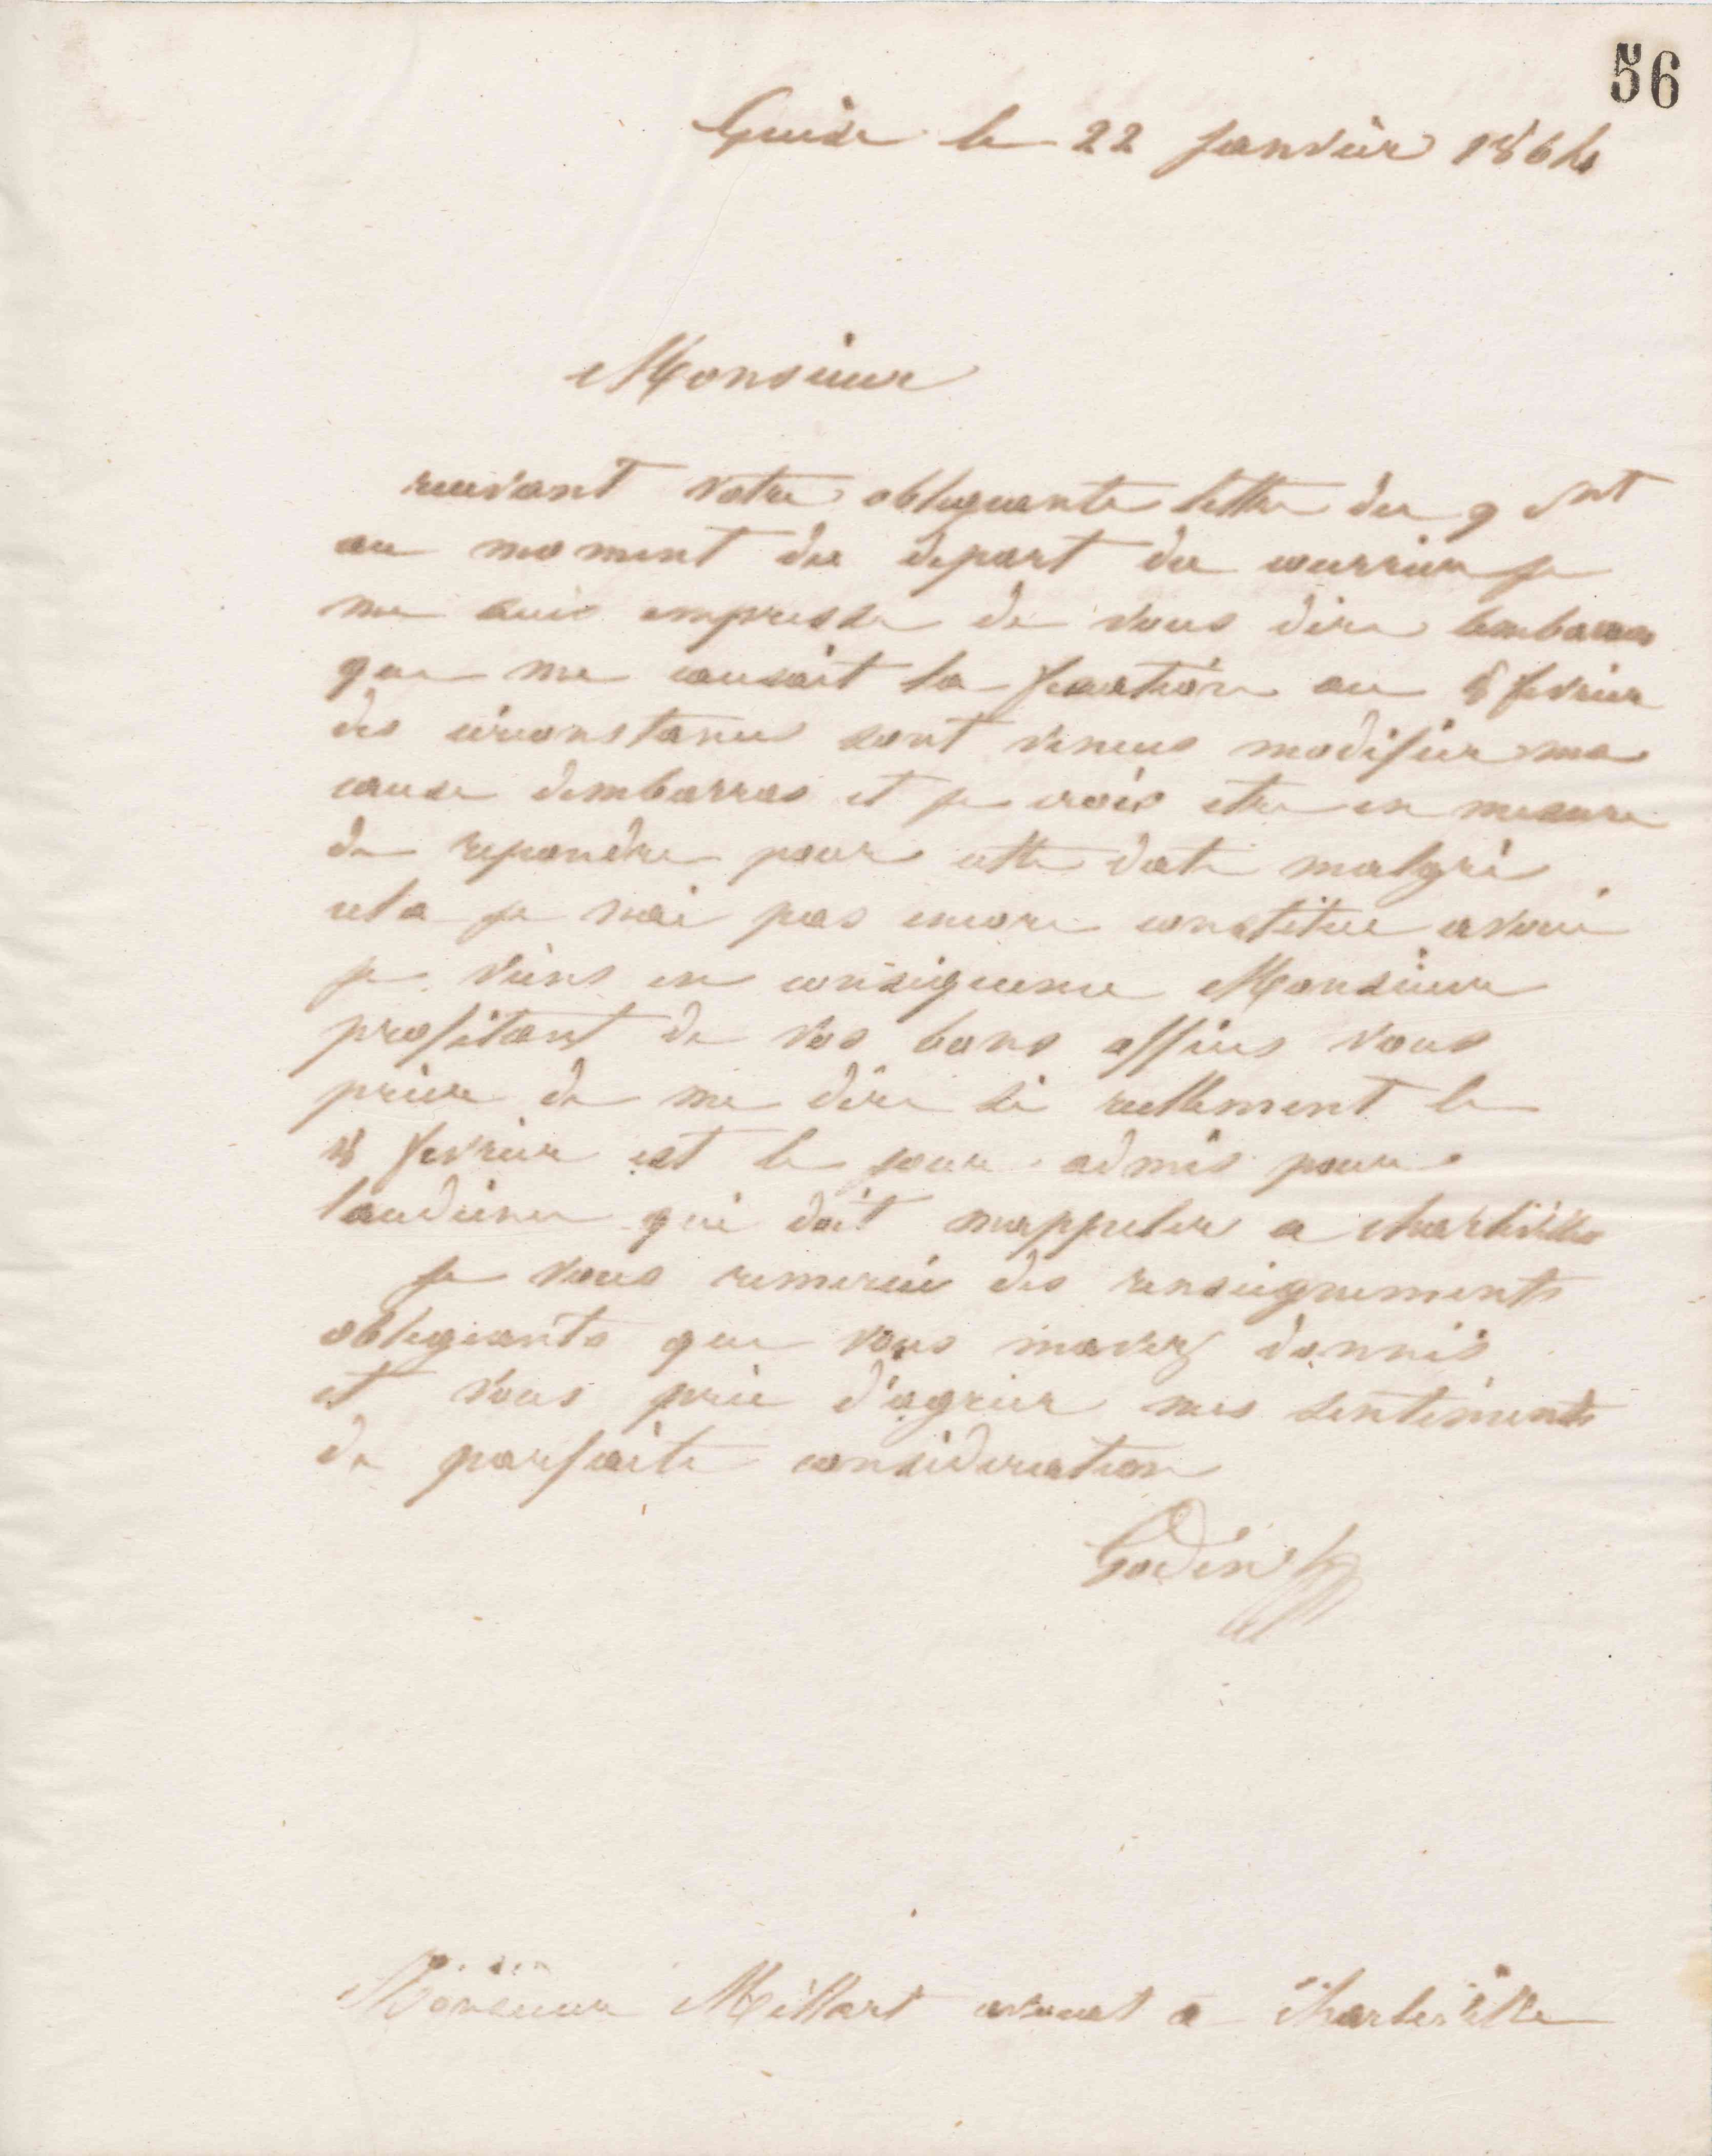 56
Guise le 22 janvier 1864
Monsieur
recevant votre obligeante lettre du 9 ct
au moment du depart du courrier je
me suis empressé de vous dire lembarras
que me causait la fixation au 8 fevrier
des circonstances sont venues modifier ma
cause dembarras et je crois etre en mesure
de repondre pour cette date malgré
cela je nai pas encore constitue avoué
je viens en conséquence Monsieur
profitant de vos bons offices vous
prier de me dire si reellement le
8 fevrier est le jour admis pour
laudience qui doit mappeler a charleville
je vous remercie des renseignements
obligeants que vous mavez donnés
et vous prie d'agréer mes sentiments
de parfaite consideration
Godin
Monsieur Millart avocat a Charleville